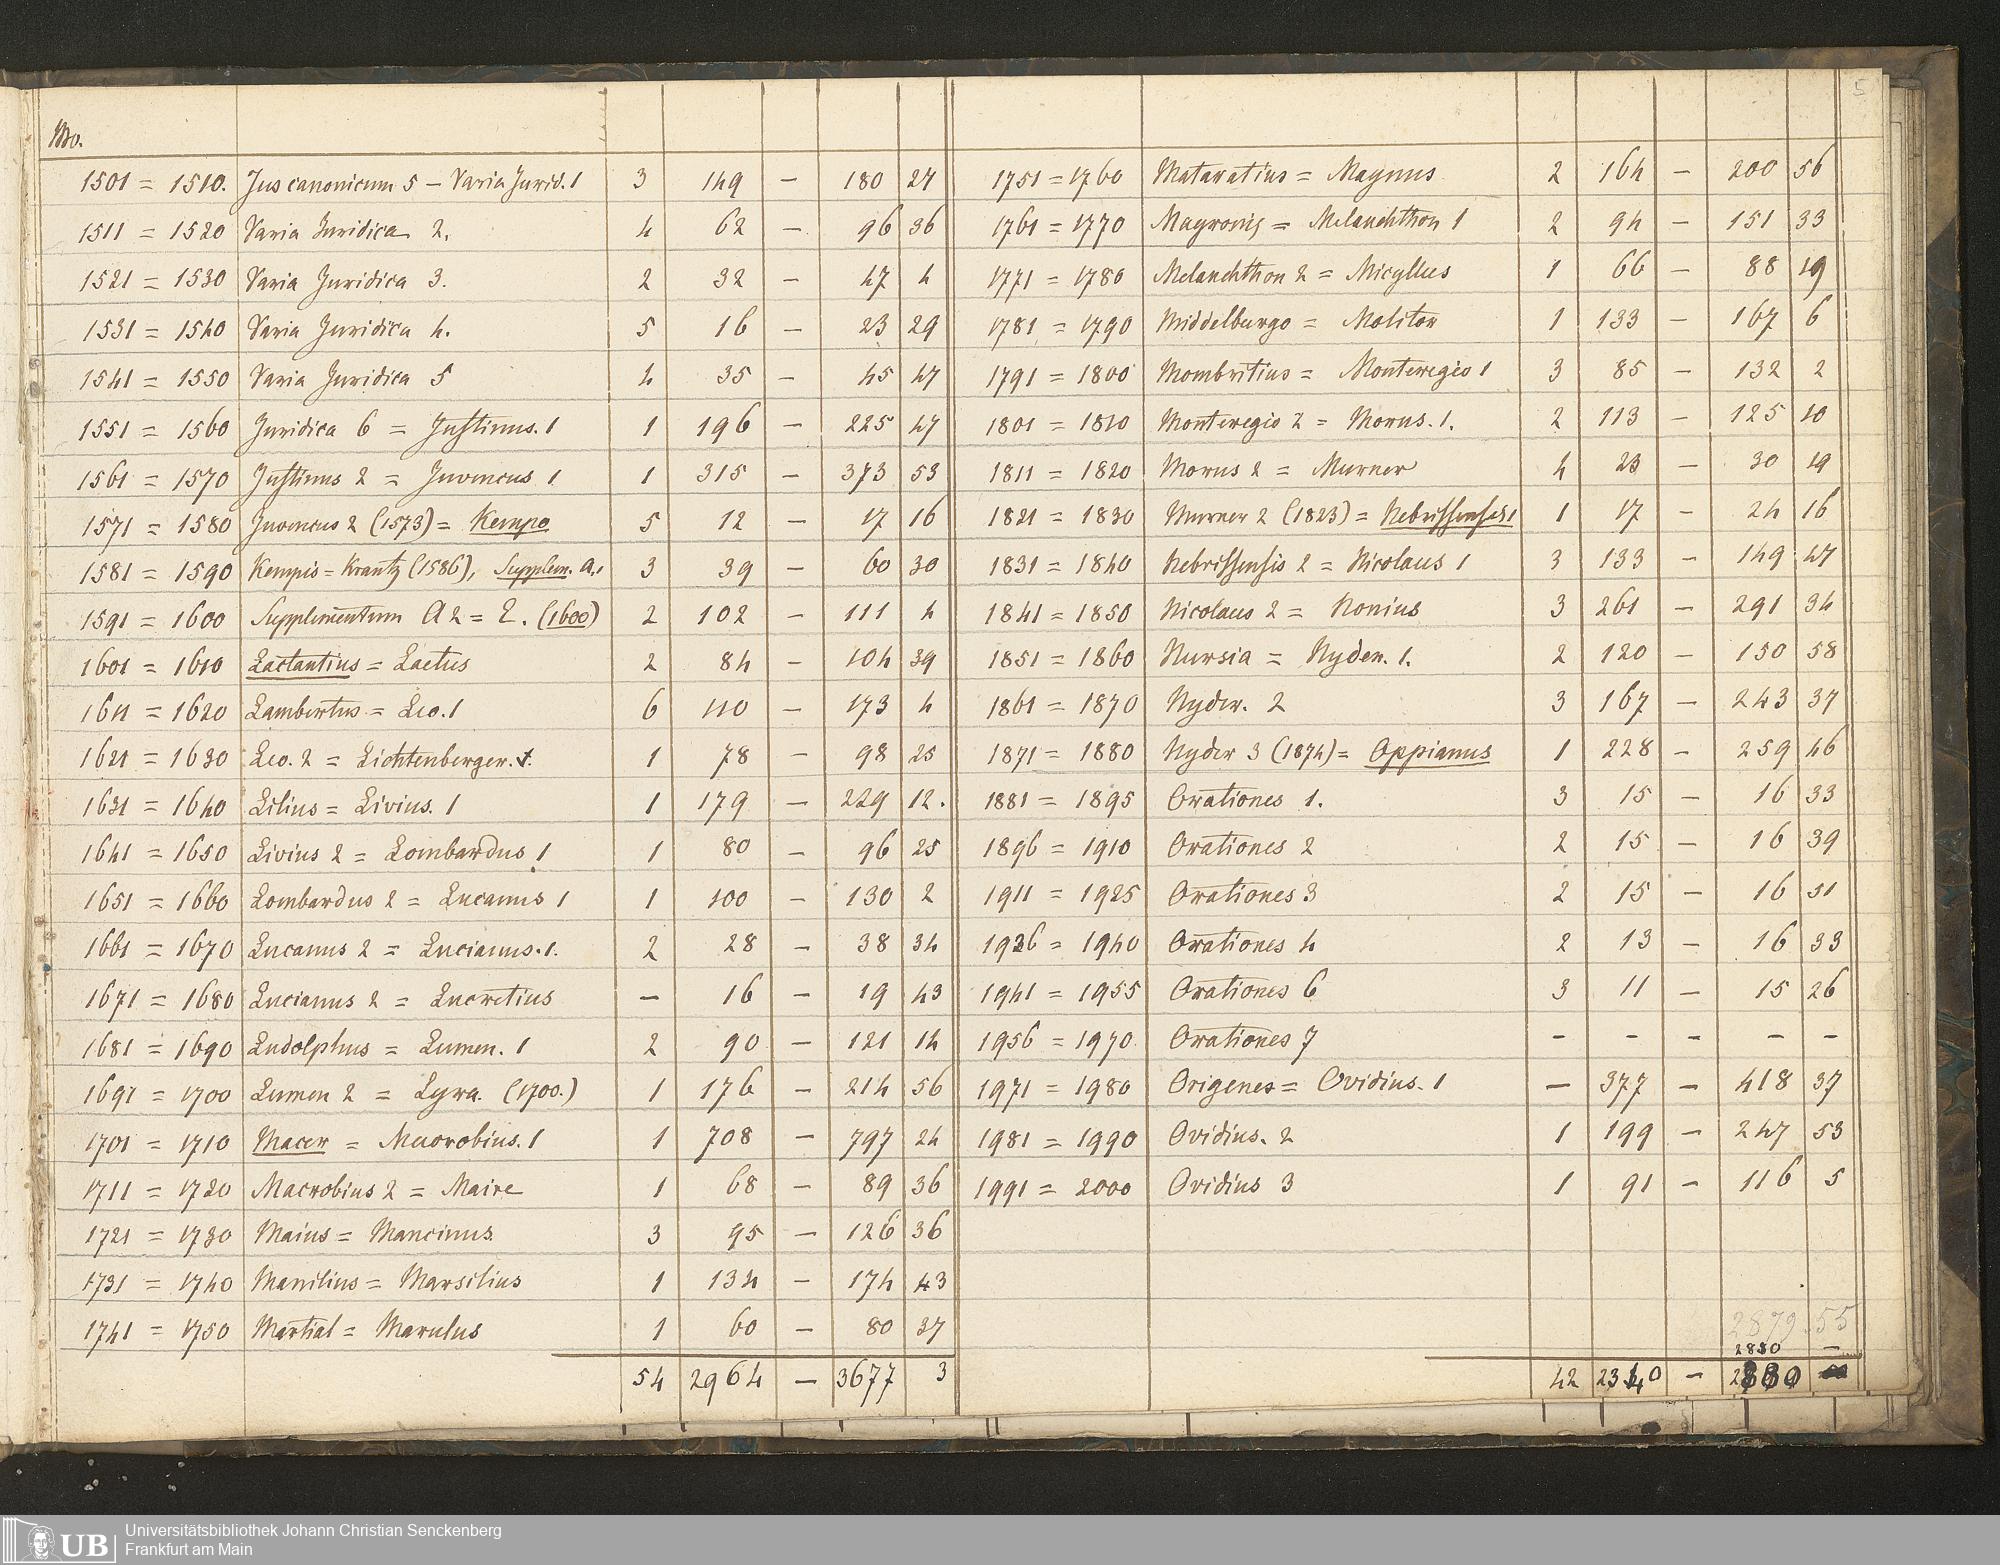 5
No.
1501 = 1510. Jus canonicum 5 – Varia Jurid. 1 3 149 – 180 27
1511 = 1520 Varia Juridica 2. 4 62 – 96 36
1521 = 1530 Varia Juridica 3. 2 32 – 47 4
1531 = 1540 Varia Juridica 4. 5 16 – 23 29
1541 = 1550 Varia Juridica 5 4 35 – 45 47
1551 = 1560 Juridica 6 = Justinus. 1 1 196 – 225 47
1561 = 1570 Justinus 2 = Juvencus 1 1 315 – 373 53
1571 = 1580 Juvencus 2 (1573) = Kempo 5 12 – 17 16
1581 = 1590 Kempis = Krantz (1586), Supplem. A, 1 3 39 – 60 30
1591 = 1600 Supplementum A 2 = Z. (1600) 2 102 – 111 4
1601 = 1610 Lactantius = Laetus 2 84 – 104 39
1611 = 1620 Lambertus = Leo. 1 6 110 – 173 4
1621 = 1630 Leo. 2 = Lichtenberger. 1 78 – 98 25
1631 = 1640 Lilius = Livius. 1 1 179 – 229 12.
1641 = 1650 Livius 2 = Lombardus 1 1 80 – 96 25
1651 = 1660 Lombardus 2 = Lucanus 1 1 100 – 130 2
1661 = 1670 Lucanus 2 = Lucianus. 1. 2 28 – 38 34
1671 = 1680 Lucianus 2 = Lucretius – 16 – 19 43
1681 = 1690 Ludolphus = Lumen. 1 2 90 – 121 14
1691 = 1700 Lumen 2 = Lyra. (1700.) 1 176 – 214 56
1701 = 1710 Macer = Macrobius. 1 1 708 – 797 24
1711 = 1720 Macrobius 2 = Maire 1 68 – 89 36
1721 = 1730 Maius = Mancinus 3 95 – 126 36
1731 = 1740 Manilius = Marsilius 1 134 – 174 43
1741 = 1750 Martial = Marulus 1 60 – 80 37
54 2964 – 3677 3
1751 = 1760 Mataratius = Magnus 2 164 – 200 56
1761 = 1770 = Melanchthon 1 2 94 – 151 33
1771 = 1780 Melanchthon 2 = Micyllus 1 66 – 88 19
1781 = 1790 Middelburgo = Molitor 1 133 – 167 6
1791 = 1800 Mombritius = Monteregio 1 3 85 – 132 2
1801 = 1810 Monteregio 2 = Morus. 1. 2 113 – 125 10
1811 = 1820 Morus 2 = Murner 4 23 – 30 19
1821 = 1830 Murner 2 (1823) = Nebrissensis 1 1 17 – 24 16
1831 = 1840 Nebrissensis 2 = Nicolaus 1 3 133 – 149 47
1841 = 1850 Nicolaus 2 = Nonius 3 261 – 291 34
1851 = 1860 Nursia = Nyder. 1. 2 120 – 150 58
1861 = 1870 Nyder. 2 3 167 – 243 37
1871 = 1880 Nyder 3 (1874) = Oppianus 1 228 – 259 46
1881 = 1895 Orationes 1. 3 15 – 16 33
1896 = 1910 Orationes 2 2 15 – 16 39
1911 = 1925 Orationes 3 2 15 – 16 51
1926 = 1940 Orationes 4 2 13 – 16 33
1941 = 1955 Orationes 6 3 11 – 15 26
1956 = 1970 Orationes 7 – – – – –
1971 = 1980 Origenes = Ovidius. 1 – 377 – 418 37
1981 = 1990 Ovidius. 2 1 199 – 247 53
1991 = 2000 Ovidius 3 1 91 – 116 5
2879.55
2880 –
42 2340 –
UB Universitätsbibliothek Johann Christian Senckenberg
Frankfurt am Main